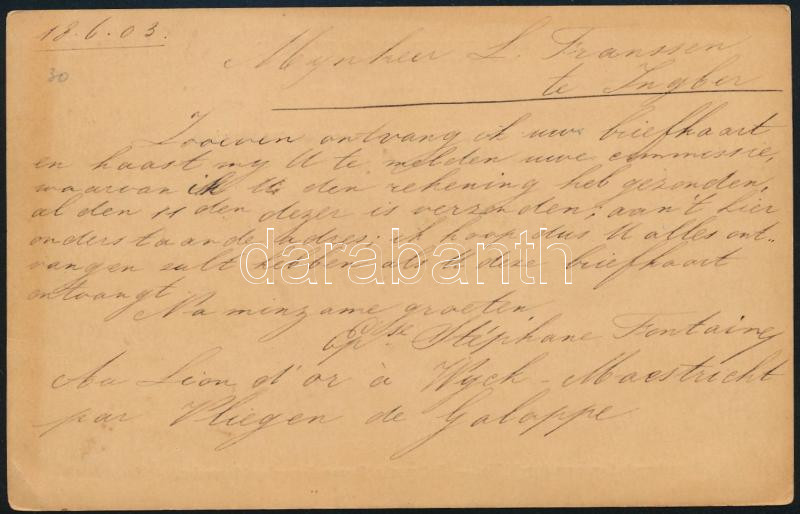 18.6.03.
30
Mynheer L. Franssen
te Ingber
Zooeven ontvang ik uwe briefkaart
en haast my U te melden uwe commissie,
waarvan ik U den rekening heb gezonden,
al den 11 den dezer is verzonden; aan't hier
onderstaande adres; ik hoop dus U alles ont-
vangen zult hebben als U deze briefkaart
ontvangt.
Na minzame groeten
Stéphane Fontaine
Au Lion d'or à Wyck-Maestricht
par Vliegen de Galoppe
darabanth